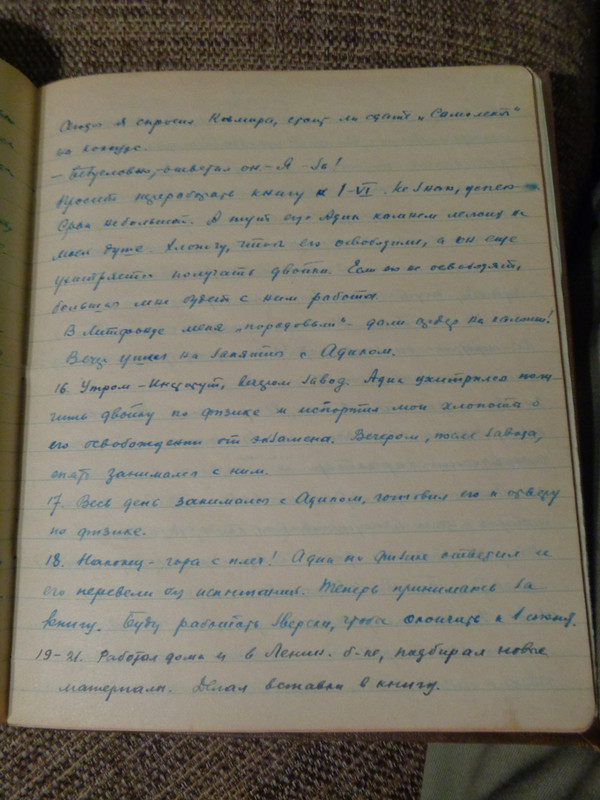 я спросил Кассиля, стоит ли сдать „Самолеты“
на конкурс.
— Безусловно, — ответил он. — Я — За!
Просит переработать книгу к 1-VI. Не знаю, успею.
Срок небольшой. А тут еще Адик камнем лежит на
моей душе. Хлопочу, чтоб его освободили, а он еще
ухитряется получать двойки. Если его не освободят,
большая мне будет с ним работа.
В Литфонде меня „порадовали“ — дали на калоши!
Вечер ушел на занятия с Адиком.
16. Утром — Институт, вечером завод. Адик ухитрился полу-
чить двойку по физике и испортил мои хлопоты о
его освобождении от экзамена. Вечером, после завода,
опять занимался с ним.
17. Весь день занимался с Адиком, готовил его к ответу
по физике.
18. Наконец — гора с плеч! Адик по физике ответил и
его перевели без испытаний. Теперь приниматься за
книгу. Буду работать зверски, чтоб окончить к 1 июня.
19-21. Работал дома и в Ленин. б-ке, подбирал новые
материалы. Делал вставки в книгу.